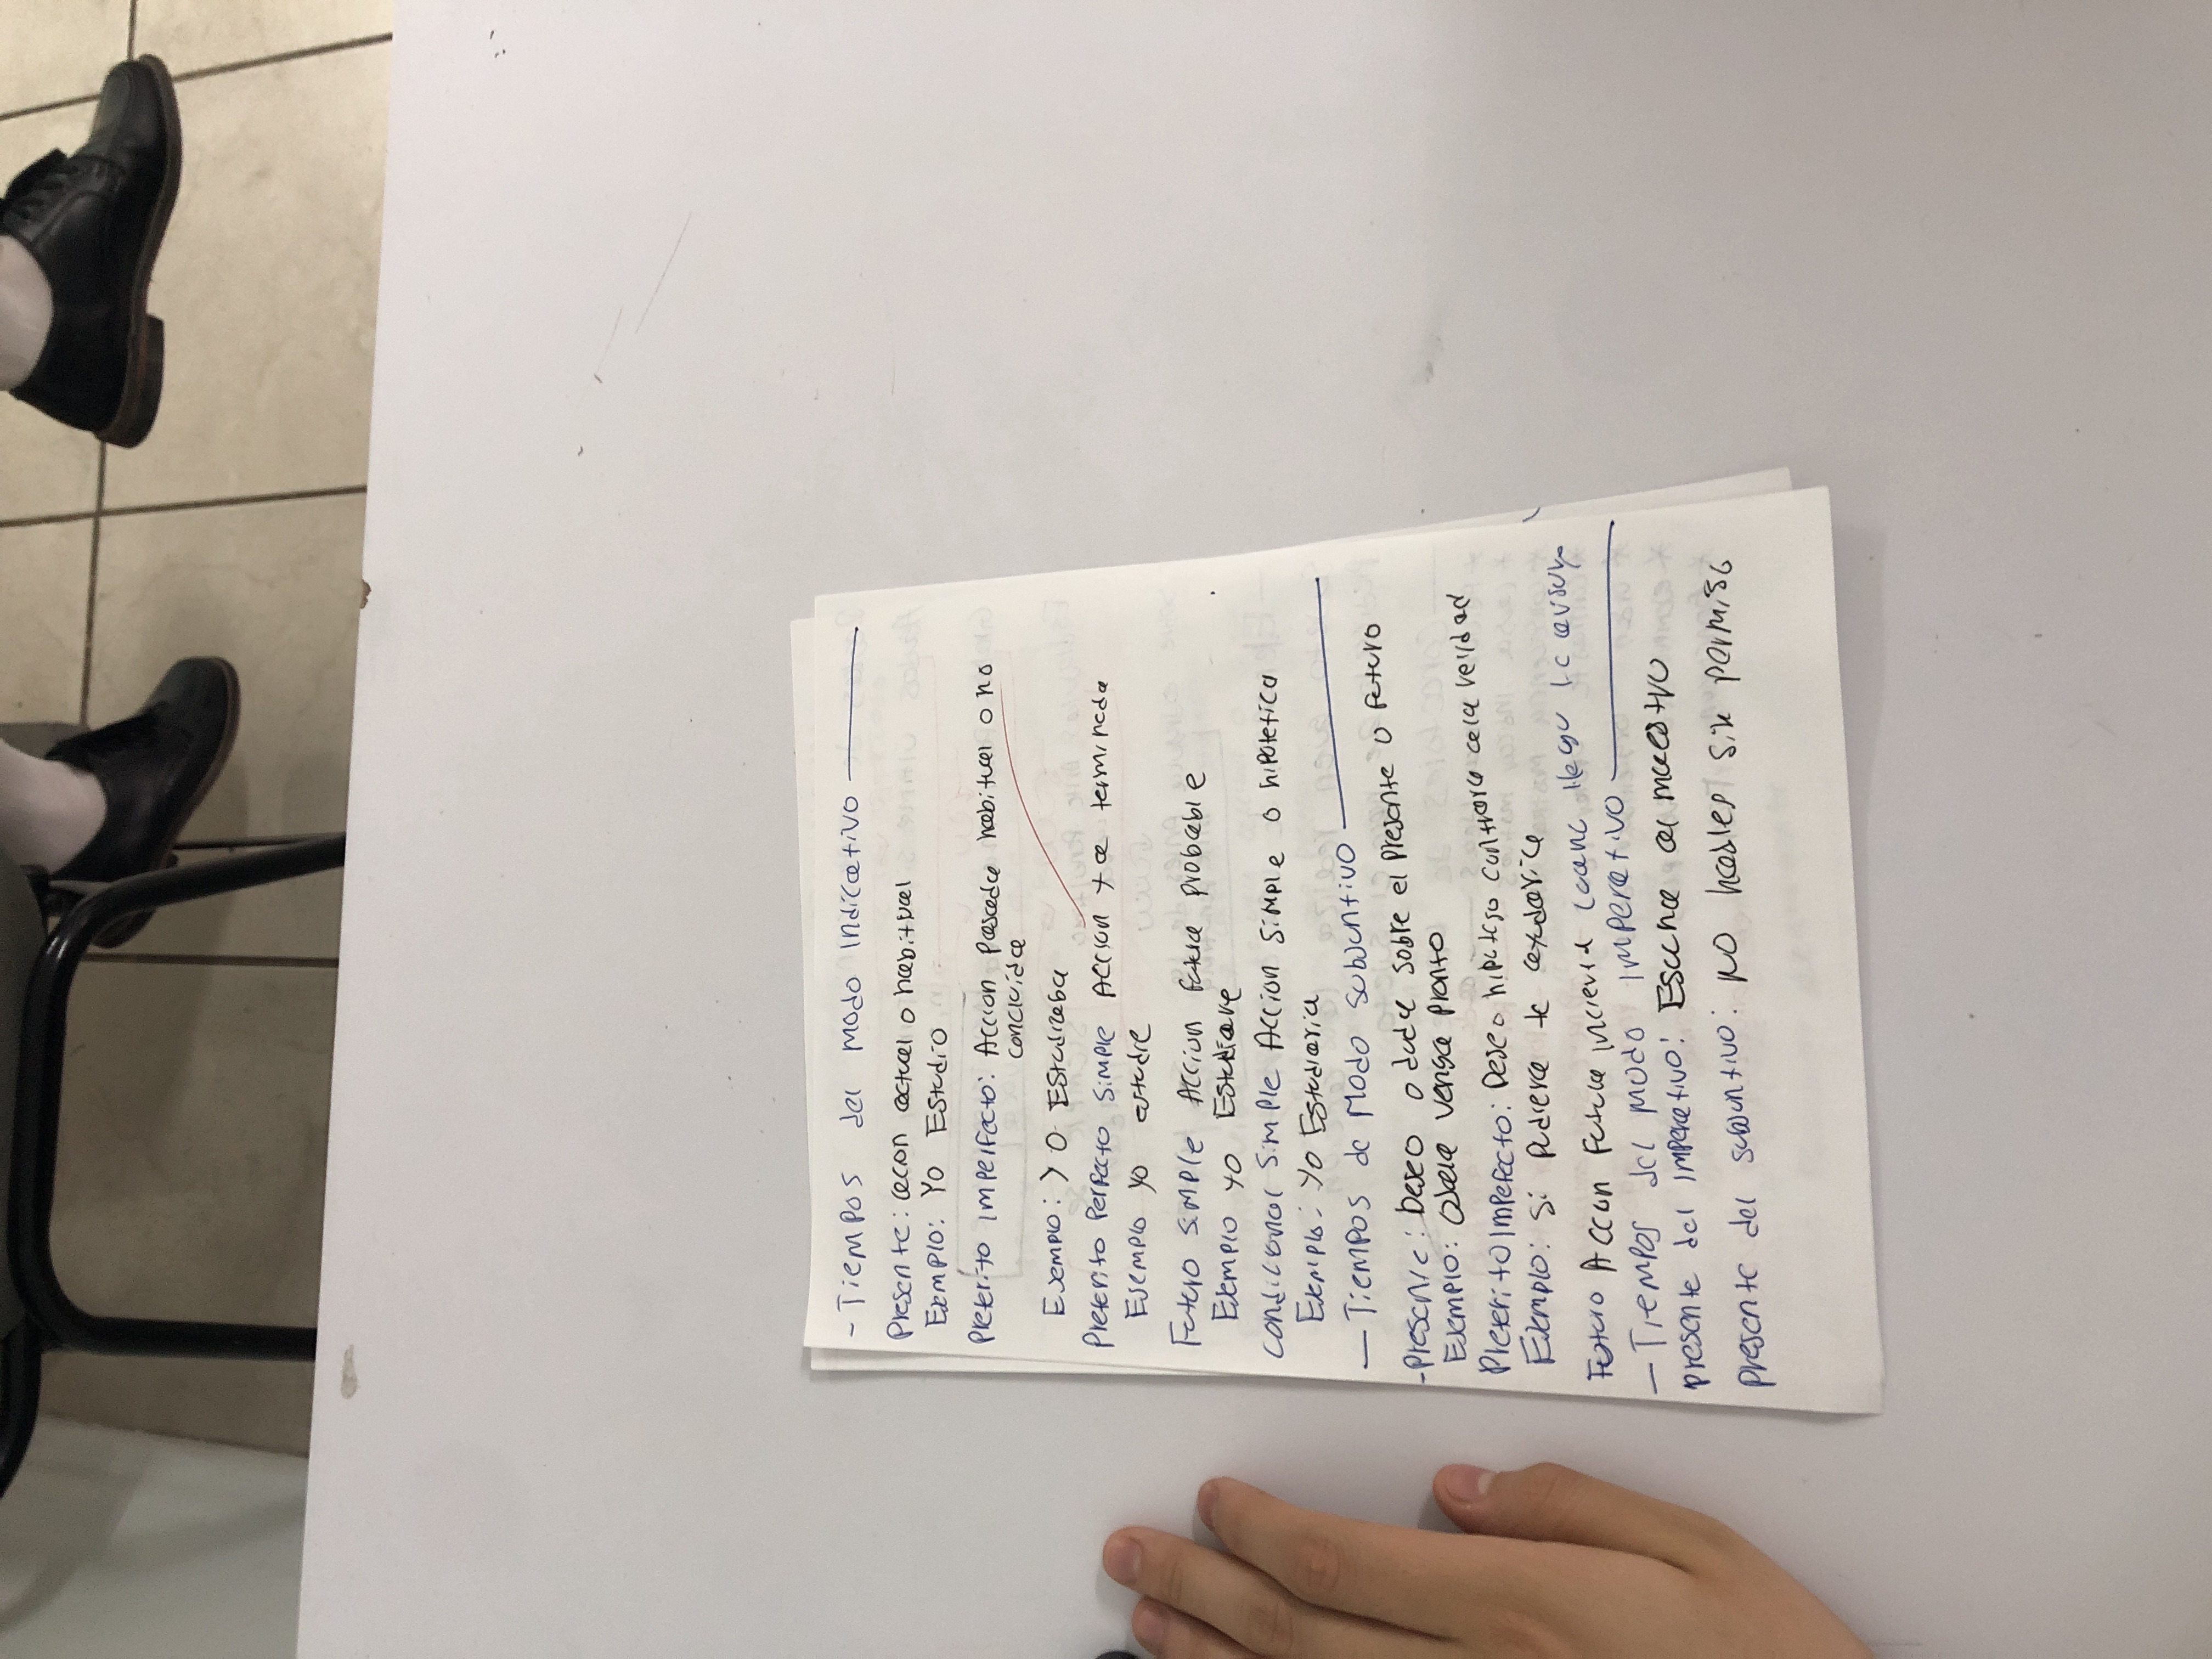 - Tiempos del modo Indicativo
Presente: accion actual o habitual
Ejemplo: Yo Estudio
Preterito imperfecto: Accion Pasada habitual o no
concluida
Ejemplo: yo Estudiaba
Preterito Perfecto simple Accion ya terminada
Ejemplo yo estudie
Futuro simple Accion futura probable
Ejemplo yo Estudiare
condicional simple Accion simple o hipotetica
Ejemplo: yo Estudiaria
- Tiempos de Modo subjuntivo
- Presente: Deseo o duda sobre el presente o futuro
Ejemplo: Ojala venga pronto
Preterito Imperfecto: Deseo hipoteso contrario a la verdad
Ejemplo: si pudiera te ayudaria
Futuro Accion Futura incierta
- Tiempos del modo imperativo
presente del imperativo: Escucha al maestro
presente del subjuntivo: no hables sin permiso